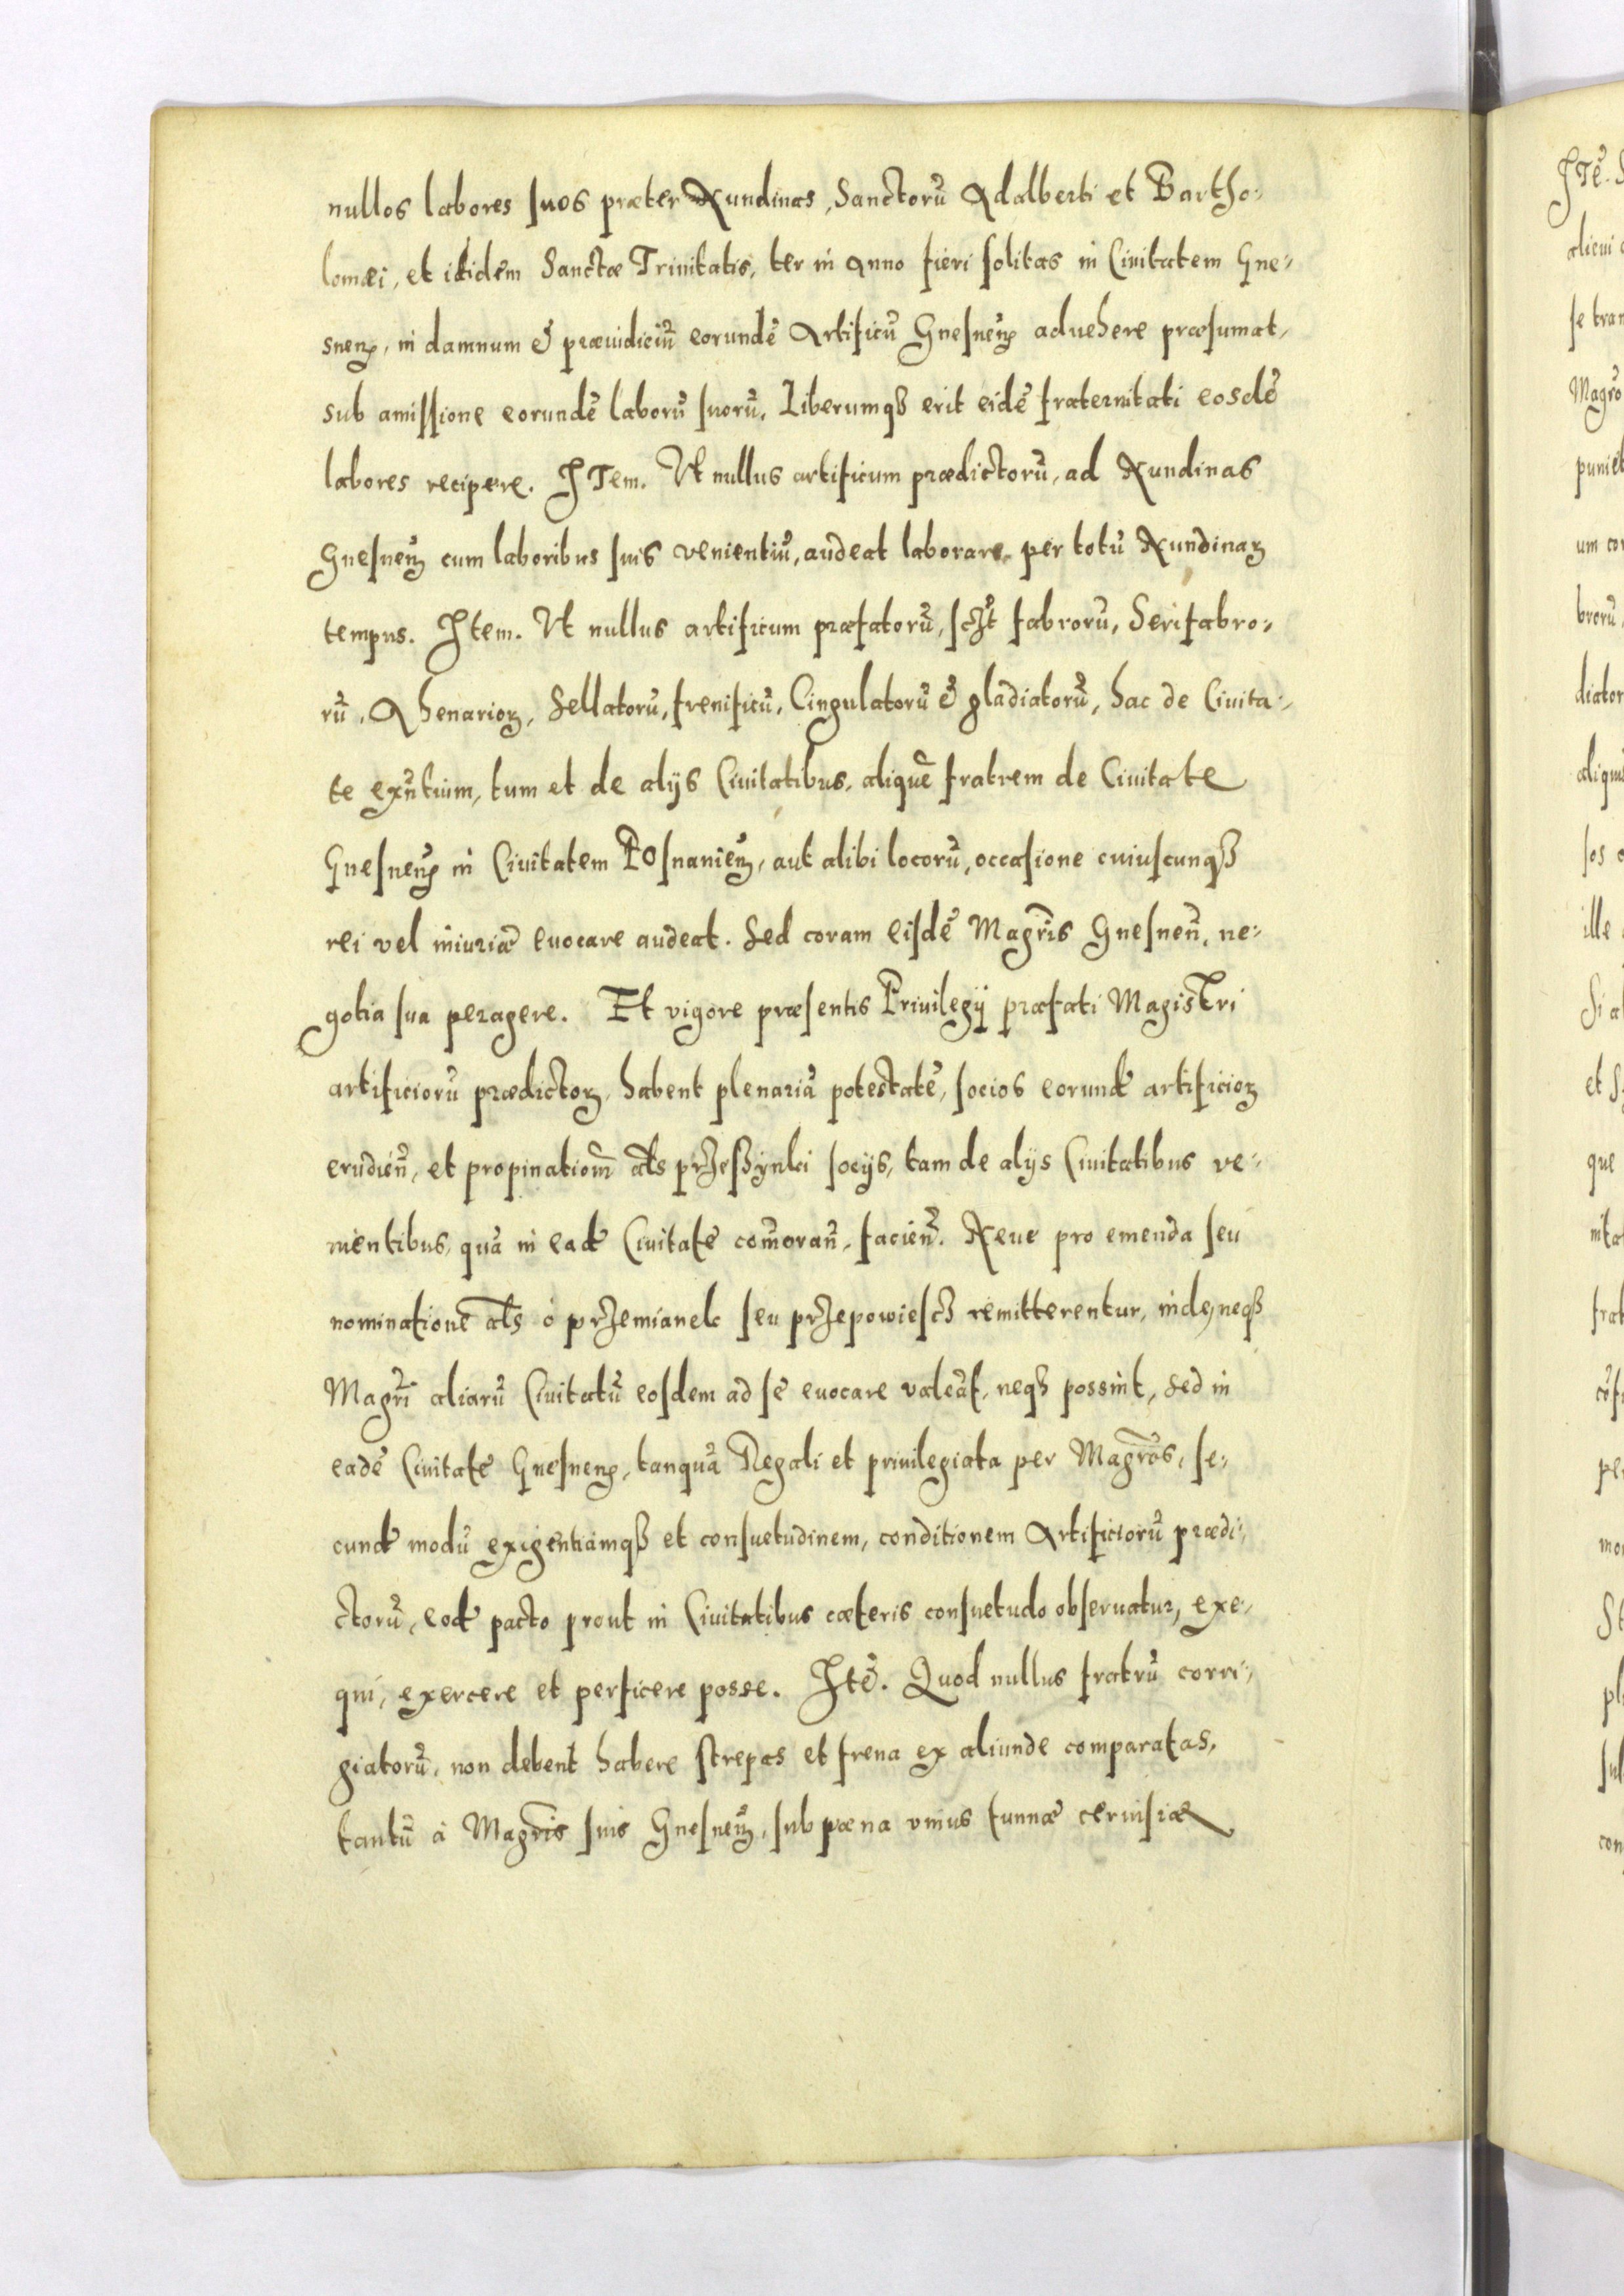 nullos labores suos præter Nundinas, Sanctorũ Adalberti et Bartho-
lomæi, et itidem Sanctæ Trinitatis, ter in Anno fieri solitas in Civitatem Gne-
snenꝭ, in damnum & præiudiciũ eorundẽ Artificũ Gnesnenꝭ aduehere præsumat,
sub amissione eorundẽ laborũ suorũ. Liberumqꝫ erit eidẽ fraternitati eosdẽ
labores recipere. ITem. Vt nullus artificum prædictorũ, ad Nundinas
Gnesnenꝭ cum laboribus suis venientiũ, audeat laborare, per totũ Nundinaꝝ
tempus. Item. Vt nullus artificum præfatorũ, sczt fabrorũ, Serifabro-
rũ, Ahenarioꝝ, Sellatorũ, frenificũ, Cingulatorũ & gladiatorũ, hac de Ciuita-
te exũtium, tum et de alijs Ciuitatibus, aliquẽ fratrem de Ciuitate
Gnesnenꝭ in Ciuitatem Posnanienꝭ, aut alibi locorũ, occasione cuiuscunqꝫ
rei vel iniuriæ euocare audeat. Sed coram eisdẽ Magr̃is Gnesneñ, ne-
gotia sua peragere. Et vigore præsentis Priuilegij præfati MagisTri
artificiorũ prædictoꝝ, habent plenariã potestatẽ, socios eorund artificioꝝ
erudieñ, et propinationẽ als przeßynki socijs, tam de alijs Ciuitatibus ve-
nientibus, quã in ead Ciuitate com̃orañ, facieñ. Neue pro emenda seu
nominatione als o przemianek seu przepowiescz remitterentur, inde, neqꝫ
Magr̃i aliarũ Ciuitatũ eosdem ad se euocare valeãt, neqꝫ possint, Sed in
eadẽ Ciuitate Gnesnenꝭ, tanquã Regali et priuilegiata per Magr̃os, se-
cund modũ exigentiamqꝫ et consuetudinem, conditionem Artificiorũ prædi-
ctorũ, eod pacto prout in Ciuitatibus cæteris consuetudo obseruatur, exe-
qui, exercere et perficere posse. Itẽ. Quod nullus fratrũ corri-
giatorũ, non debent habere strepas et frena ex aliunde comparatas,
tantũ à Magr̃is suis Gnesnenꝭ, sub pæna vnius tunnæ ceruisiæ